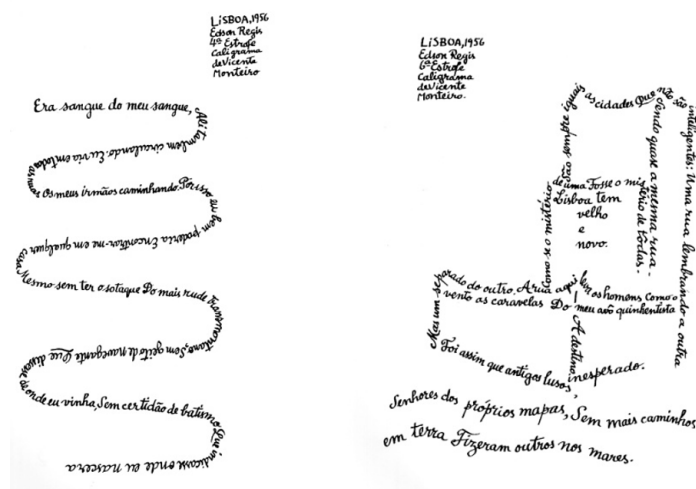 LiSBOA,1956
Edson Regis
4ª Estrofe
Caligrama
de Vicente
Monteiro
Era sangue do meu sangue,
Ali também circulando. Eu via em todas as ruas
Os meus irmãos caminhando. Por isso eu bem poderia
Encontrar-me em qualquer casa
Mesmo sem ter o sotaque Do mais rude
Transmontano, Sem geito de navegante Que dissesse
onde eu vinha, Sem certidão de batismo Que
indicasse onde eu nascera
LiSBOA,1956
Edson Regis
6ª Estrofe
Caligrama
de Vicente
Monteiro.
São sempre iguais
as cidades Que não são
inteligentes: Uma rua lembrando a outra
Sendo quase a mesma rua.
Como se o mistério
de uma Fosse o mistério de todas.
Lisboa tem
velho
e
novo.
Mas um separado do outro. A rua aqui
leva os homens Como o
vento as caravelas Do meu avô quinhentista
A destino inesperado.
Foi assim que antigos lusos,
Senhores dos próprios mapas, Sem mais caminhos
em terra Fizeram outros nos mares.